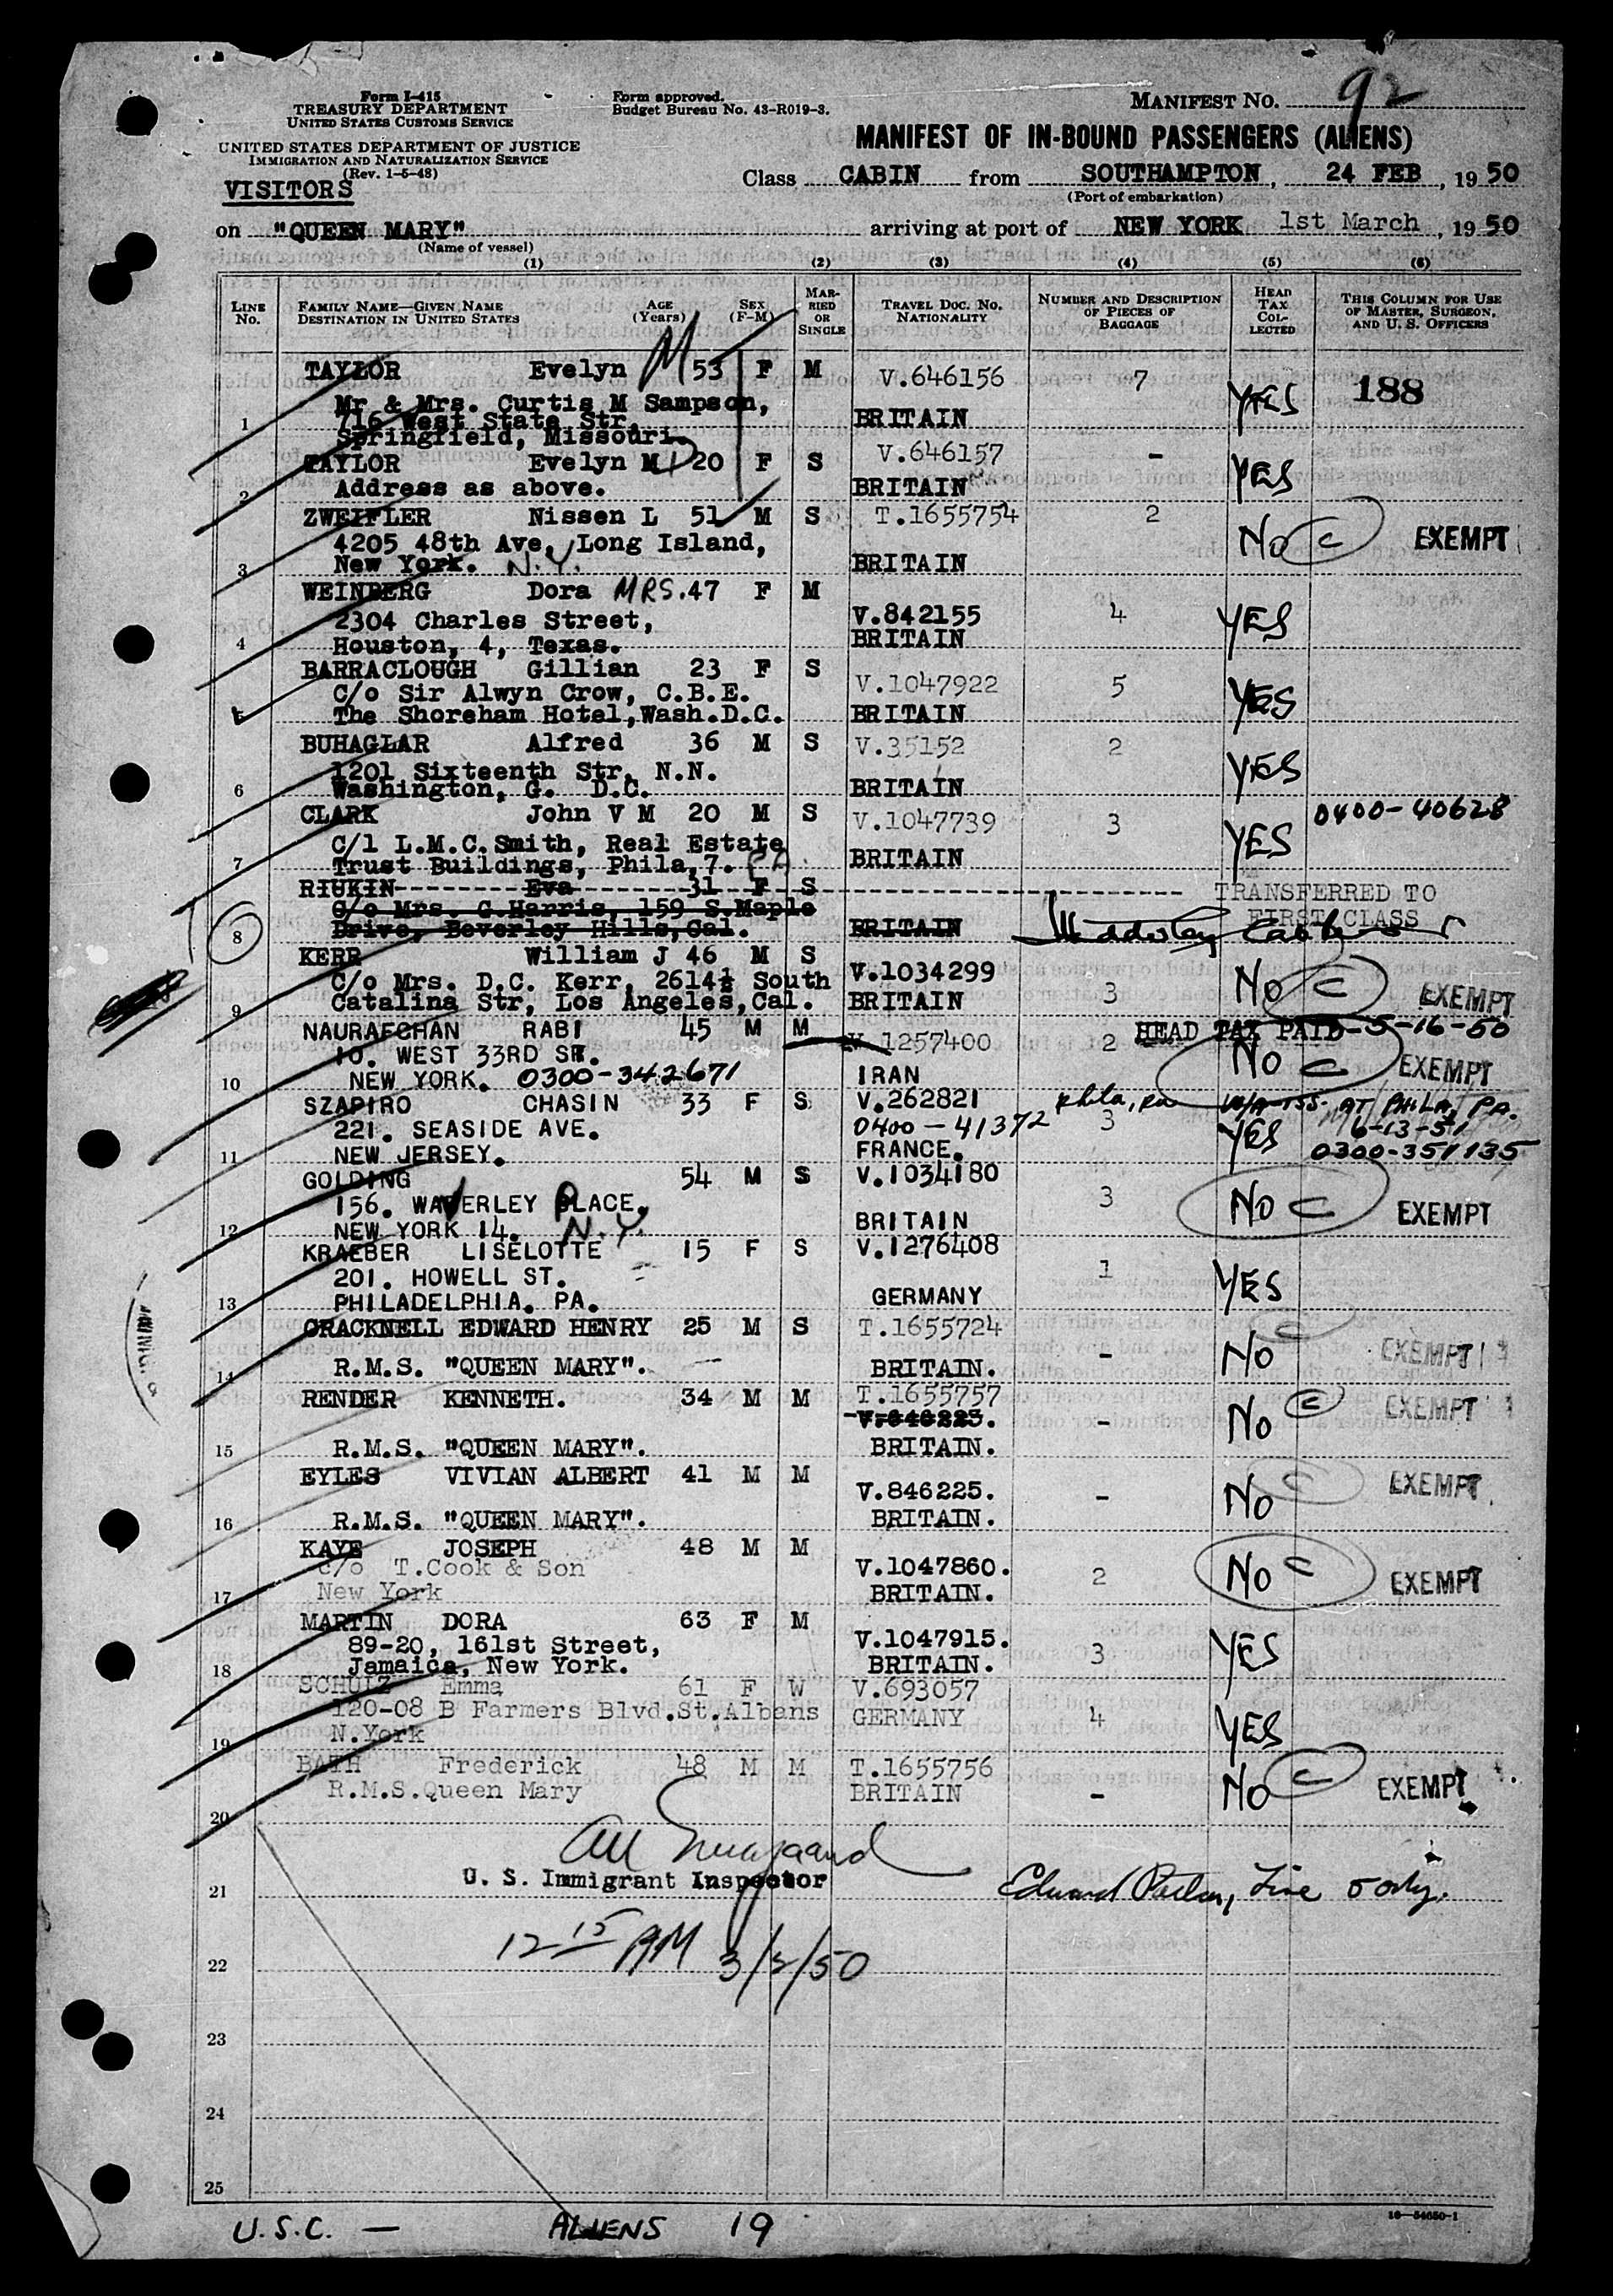 Form I-415
TREASURY DEPARTMENT
UNITED STATES CUSTOMS SERVICE
UNITED STATES DEPARTMENT OF JUSTICE
IMMIGRATION AND NATURALIZATION SERVICE
(Rev. 1-5-48)
VISITORS
Form approved.
Budget Bureau No. 43-R019-3.
MANIFEST NO. 92
MANIFEST OF IN-BOUND PASSENGERS (ALIENS)
Class CABIN from SOUTHAMPTON, 24 FEB, 1950
(Port of embarkation)
on "QUEEN MARY" arriving at port of NEW YORK 1st March, 1950
(Name of vessel)
(1) (2) (3) (4) (5) (6)
LINE No. FAMILY NAME—GIVEN NAME DESTINATION IN UNITED STATES AGE (Years) SEX (F-M) MARRIED OR SINGLE TRAVEL DOC. No. NATIONALITY NUMBER AND DESCRIPTION OF PIECES OF BAGGAGE HEAD TAX COLLECTED THIS COLUMN FOR USE OF MASTER, SURGEON, AND U. S. OFFICERS
TAYLOR Evelyn M 53 F M V.646156 7 YES 188
Mr & Mrs. Curtis M Sampson,
716 West State Str,
1 Springfield, Missouri. BRITAIN
TAYLOR Evelyn M 20 F S V.646157 - YES
2 Address as above. BRITAIN
ZWEIFLER Nissen L 51 M S T.1655754 2 No C EXEMPT
4205 48th Ave, Long Island,
3 New York. N.Y. BRITAIN
WEINBERG Dora MRS. 47 F M
2304 Charles Street, V.842155 4 YES
4 Houston, 4, Texas. BRITAIN
BARRACLOUGH Gillian 23 F S V.1047922 5 YES
C/o Sir Alwyn Crow, C.B.E.
5 The Shoreham Hotel,Wash.D.C. BRITAIN
BUHAGLAR Alfred 36 M S V.35152 2 YES
1201 Sixteenth Str, N.N.
6 Washington, G. D.C. BRITAIN
CLARK John V M 20 M S V.1047739 3 YES 0400-40628
C/l L.M.C.Smith, Real Estate
7 Trust Buildings, Phila,7. PA. BRITAIN
RIUKIN Eva 31 F S TRANSFERRED TO
C/o Mrs. C.Harris, 159 S.Maple FIRST CLASS
8 Drive, Beverley Hills,Cal. BRITAIN
KERR William J 46 M S V.1034299 3 No C EXEMPT
C/o Mrs. D.C. Kerr, 2614½ South
9 Catalina Str, Los Angeles,Cal. BRITAIN
NAURAFCHAN RABI 45 M M V.1257400 2 HEAD TAX PAID-5-16-50
10. WEST 33RD ST. No C EXEMPT
10 NEW YORK. 0300-342671 IRAN
SZAPIRO CHASIN 33 F S V.262821 Phila, Pa AT PHILA, PA.
221. SEASIDE AVE. 0400-41372 3 YES 6-13-51
11 NEW JERSEY. FRANCE. 0300-351135
GOLDING 54 M S V.1034180 3 No C EXEMPT
156. WAVERLEY PLACE.
12 NEW YORK 14. N.Y. BRITAIN
KRAEBER LISELOTTE 15 F S V.1276408 1 YES
201. HOWELL ST.
13 PHILADELPHIA. PA. GERMANY
CRACKNELL EDWARD HENRY 25 M S T.1655724 - No C EXEMPT
14 R.M.S. "QUEEN MARY". BRITAIN.
RENDER KENNETH. 34 M M T.1655757 - No C EXEMPT
V.846223.
15 R.M.S. "QUEEN MARY". BRITAIN.
EYLES VIVIAN ALBERT 41 M M V.846225. - No C EXEMPT
16 R.M.S. "QUEEN MARY". BRITAIN.
KAYE JOSEPH 48 M M V.1047860. 2 No C EXEMPT
c/o T.Cook & Son
17 New York BRITAIN.
MARTIN DORA 63 F M V.1047915. 3 YES
89-20, 161st Street,
18 Jamaica, New York. BRITAIN.
SCHULZ Emma 61 F W V.693057 4 YES
120-08 B Farmers Blvd.St.Albans GERMANY
19 N.York
BATH Frederick 48 M M T.1655756 - No C EXEMPT
R.M.S.Queen Mary BRITAIN
20
U. S. Immigrant Inspector
21 Edward Line 5 only.
12 15 AM 3/2/50
22
23
24
25
16—54650-1
U.S.C. — ALIENS 19